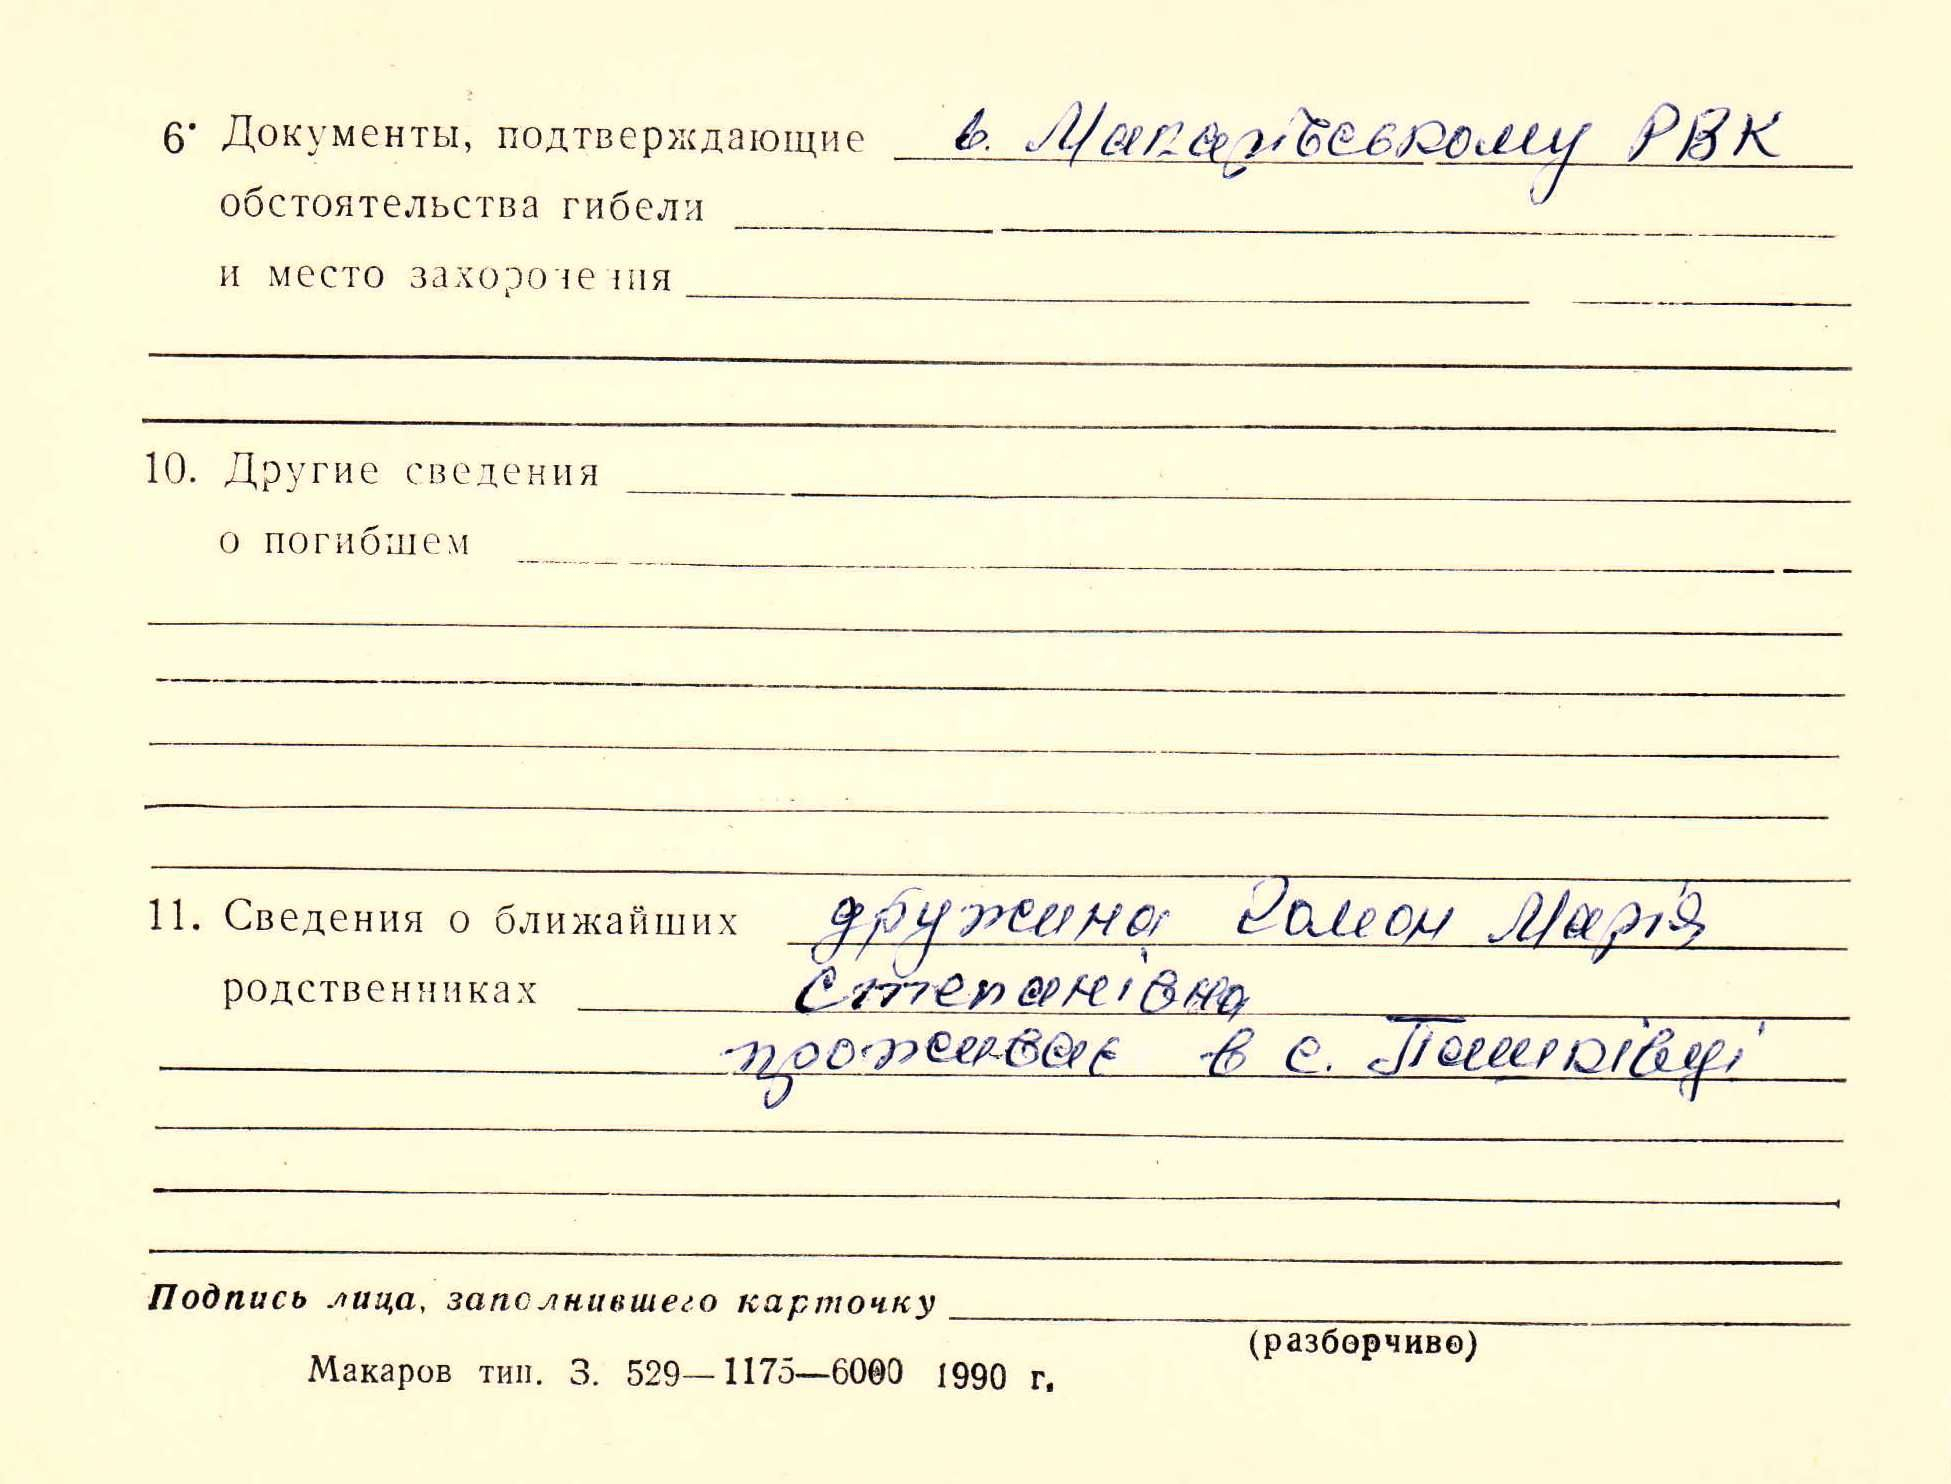 6. Документы, подтверждающие в. Макарівському РВК
обстоятельства гибели
и место захоронения
10. Другие сведения
о погибшем
11. Сведения о ближайших дружина Гамон Марія
родственниках Степанівна
проживає в с. Пашківці
Подпись лица, заполнившего карточку
(разборчиво)
Макаров тип. З. 529—1175—6000 1990 г.